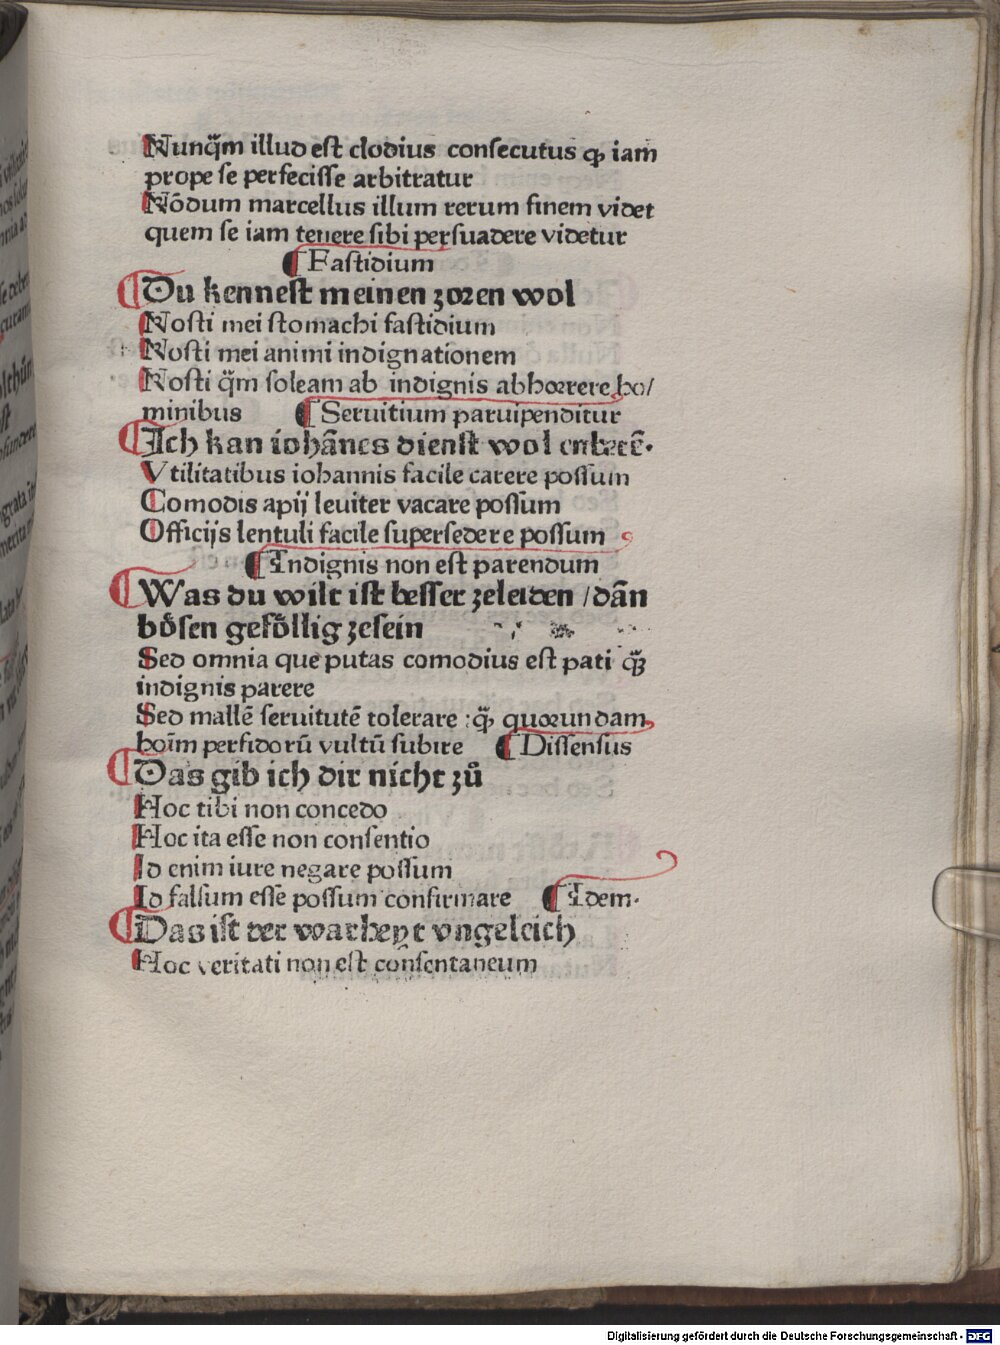 Nunq̃m illud est clodius consecutus ꝙ iam
prope se perfecisse arbitratur
Nōdum marcellus illum rerum finem videt
quem se iam tenere sibi persuadere videtur
¶ Fastidium
¶ Du kennest meinen zoren wol
Nosti mei stomachi fastidium
Nosti mei animi indignationem
Nosti q̃m soleam ab indignis abhorrere ho/
minibus ¶ Seruitium paruipenditur
¶ Ich kan iohānes dienst wol enberē.
Vtilitatibus iohannis facile carere possum
Comodis apij leuiter vacare possum
Officijs lentuli facile supersedere possum
¶ Indignis non est parendum
¶ Was du wilt ist besser zeleiden /dān
bösen geföllig zesein
Sed omnia que putas comodius est pati q̃ꝫ
indignis parere
Sed mallē seruitutē tolerare :q̃ꝫ quorundam
hoīm perfidorū vultū subire ¶ Dissensus
¶ Das gib ich dir nicht zů
Hoc tibi non concedo
Hoc ita esse non consentio
Id enim iure negare possum
Id falsum esse possum confirmare ¶ Idem.
¶ Das ist der warheyt vngeleich
Hoc veritati non est consentaneum
Digitalisierung gefördert durch die Deutsche Forschungsgemeinschaft - DFG